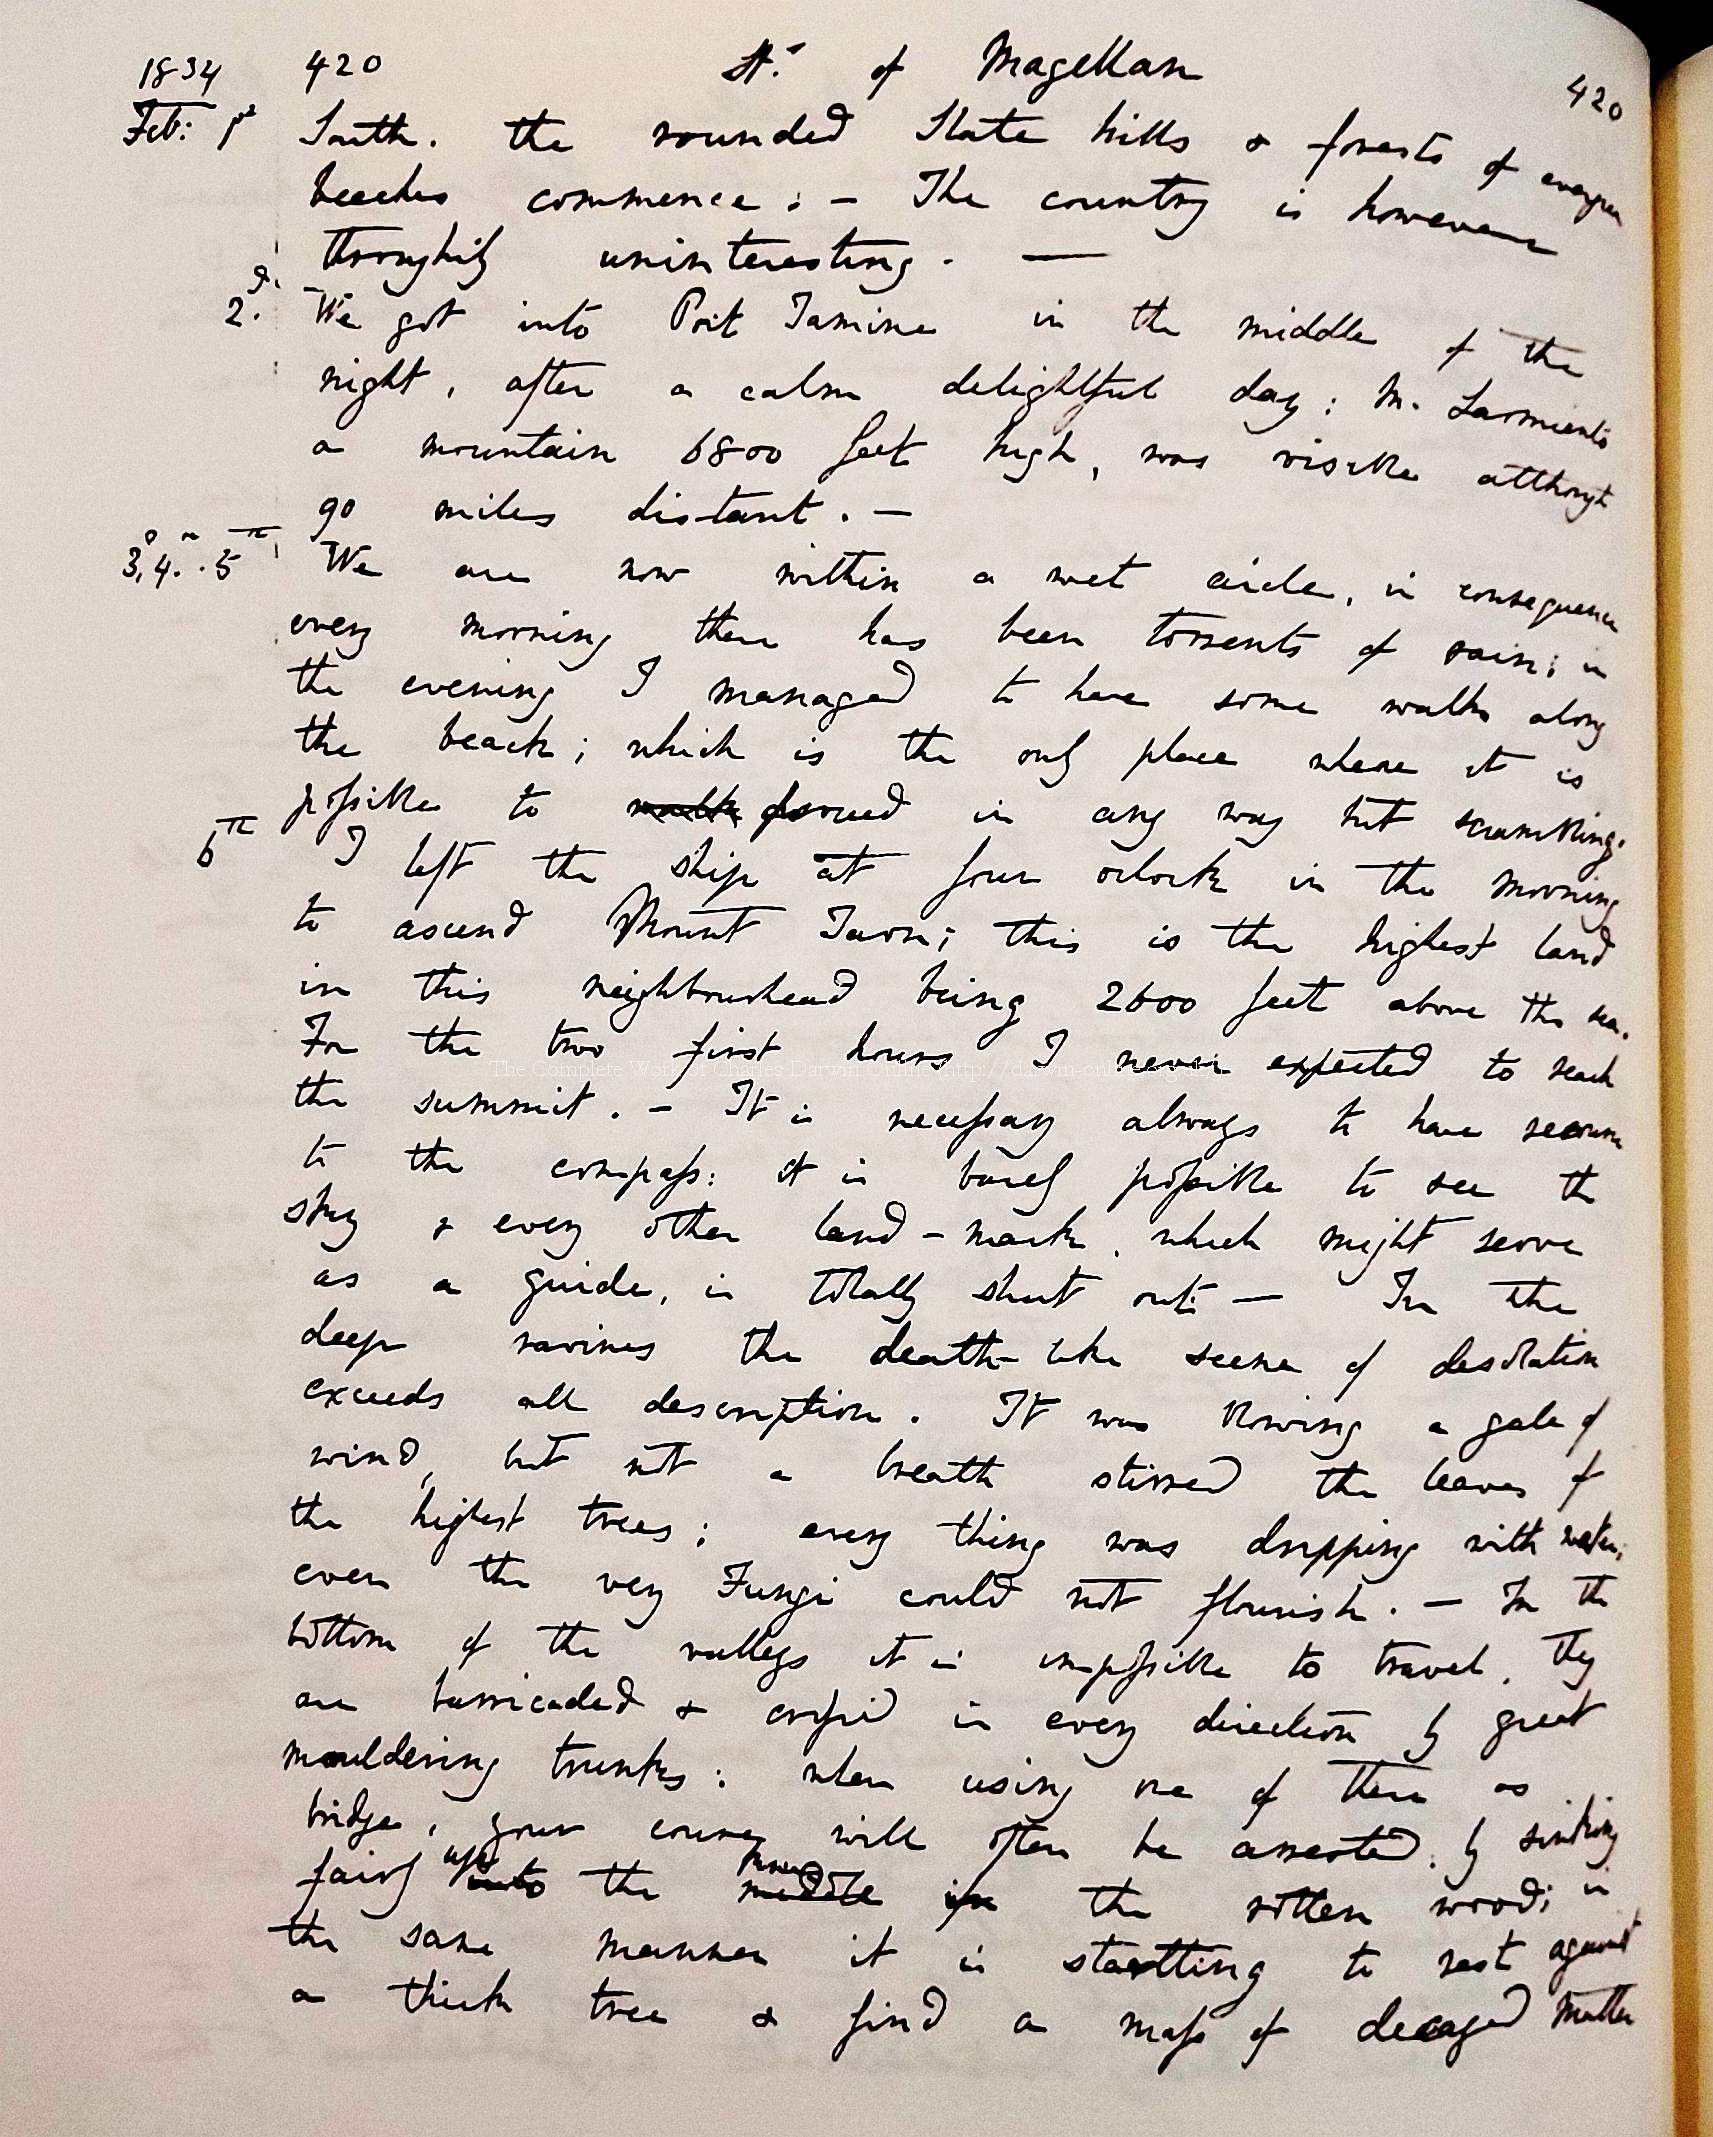 1834 420 St. of Magellan 420
Feb: 1st South. the rounded Slate hills & forests of evergreen
beeches commence: — The country is however
throughily uninteresting. —
2d. We got into Port Famine in the middle of the
night, after a calm delightful day: M. Sarmiento
a mountain 6800 feet high, was visible although
90 miles distant. —
3d, 4th. 5th We are now within a wet circle, in consequence
every morning there has been torrents of rain; in
the evening I managed to have some walks along
the beach; which is the only place where it is
possible to walk proceed in any way but scrambling.
6th I left the ship at four oclock in the morning
to ascend Mount Tarn; this is the highest land
in this neighbourhead being 2600 feet above the sea.
For the two first hours I never expected to reach
the summit. — It is necessary always to have recourse
to the compass: it is barely possible to see the
sky & every other land-mark, which might serve
as a guide, is totally shut out. — In the
deep ravines the death-like scene of desolation
exceeds all description. It was blowing a gale of
wind, but not a breath stirred the leaves of
the highest trees; every thing was dripping with water;
even the very Fungi could not flourish. — In the
bottom of the valleys it is impossible to travel, they
are barricaded & crossed in every direction by great
mouldering trunks: when using one of these as
bridge, your course will often be arrested by sinking
fairly up to into the knee middle in the rotten wood; in
the same manner it is startling to rest against
a thick tree & find a mass of decayed matter
The Complete Work of Charles Darwin Online